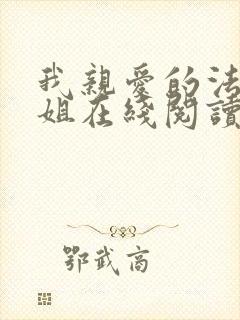 我親愛的法
姐在綫閱讀
鄂武商